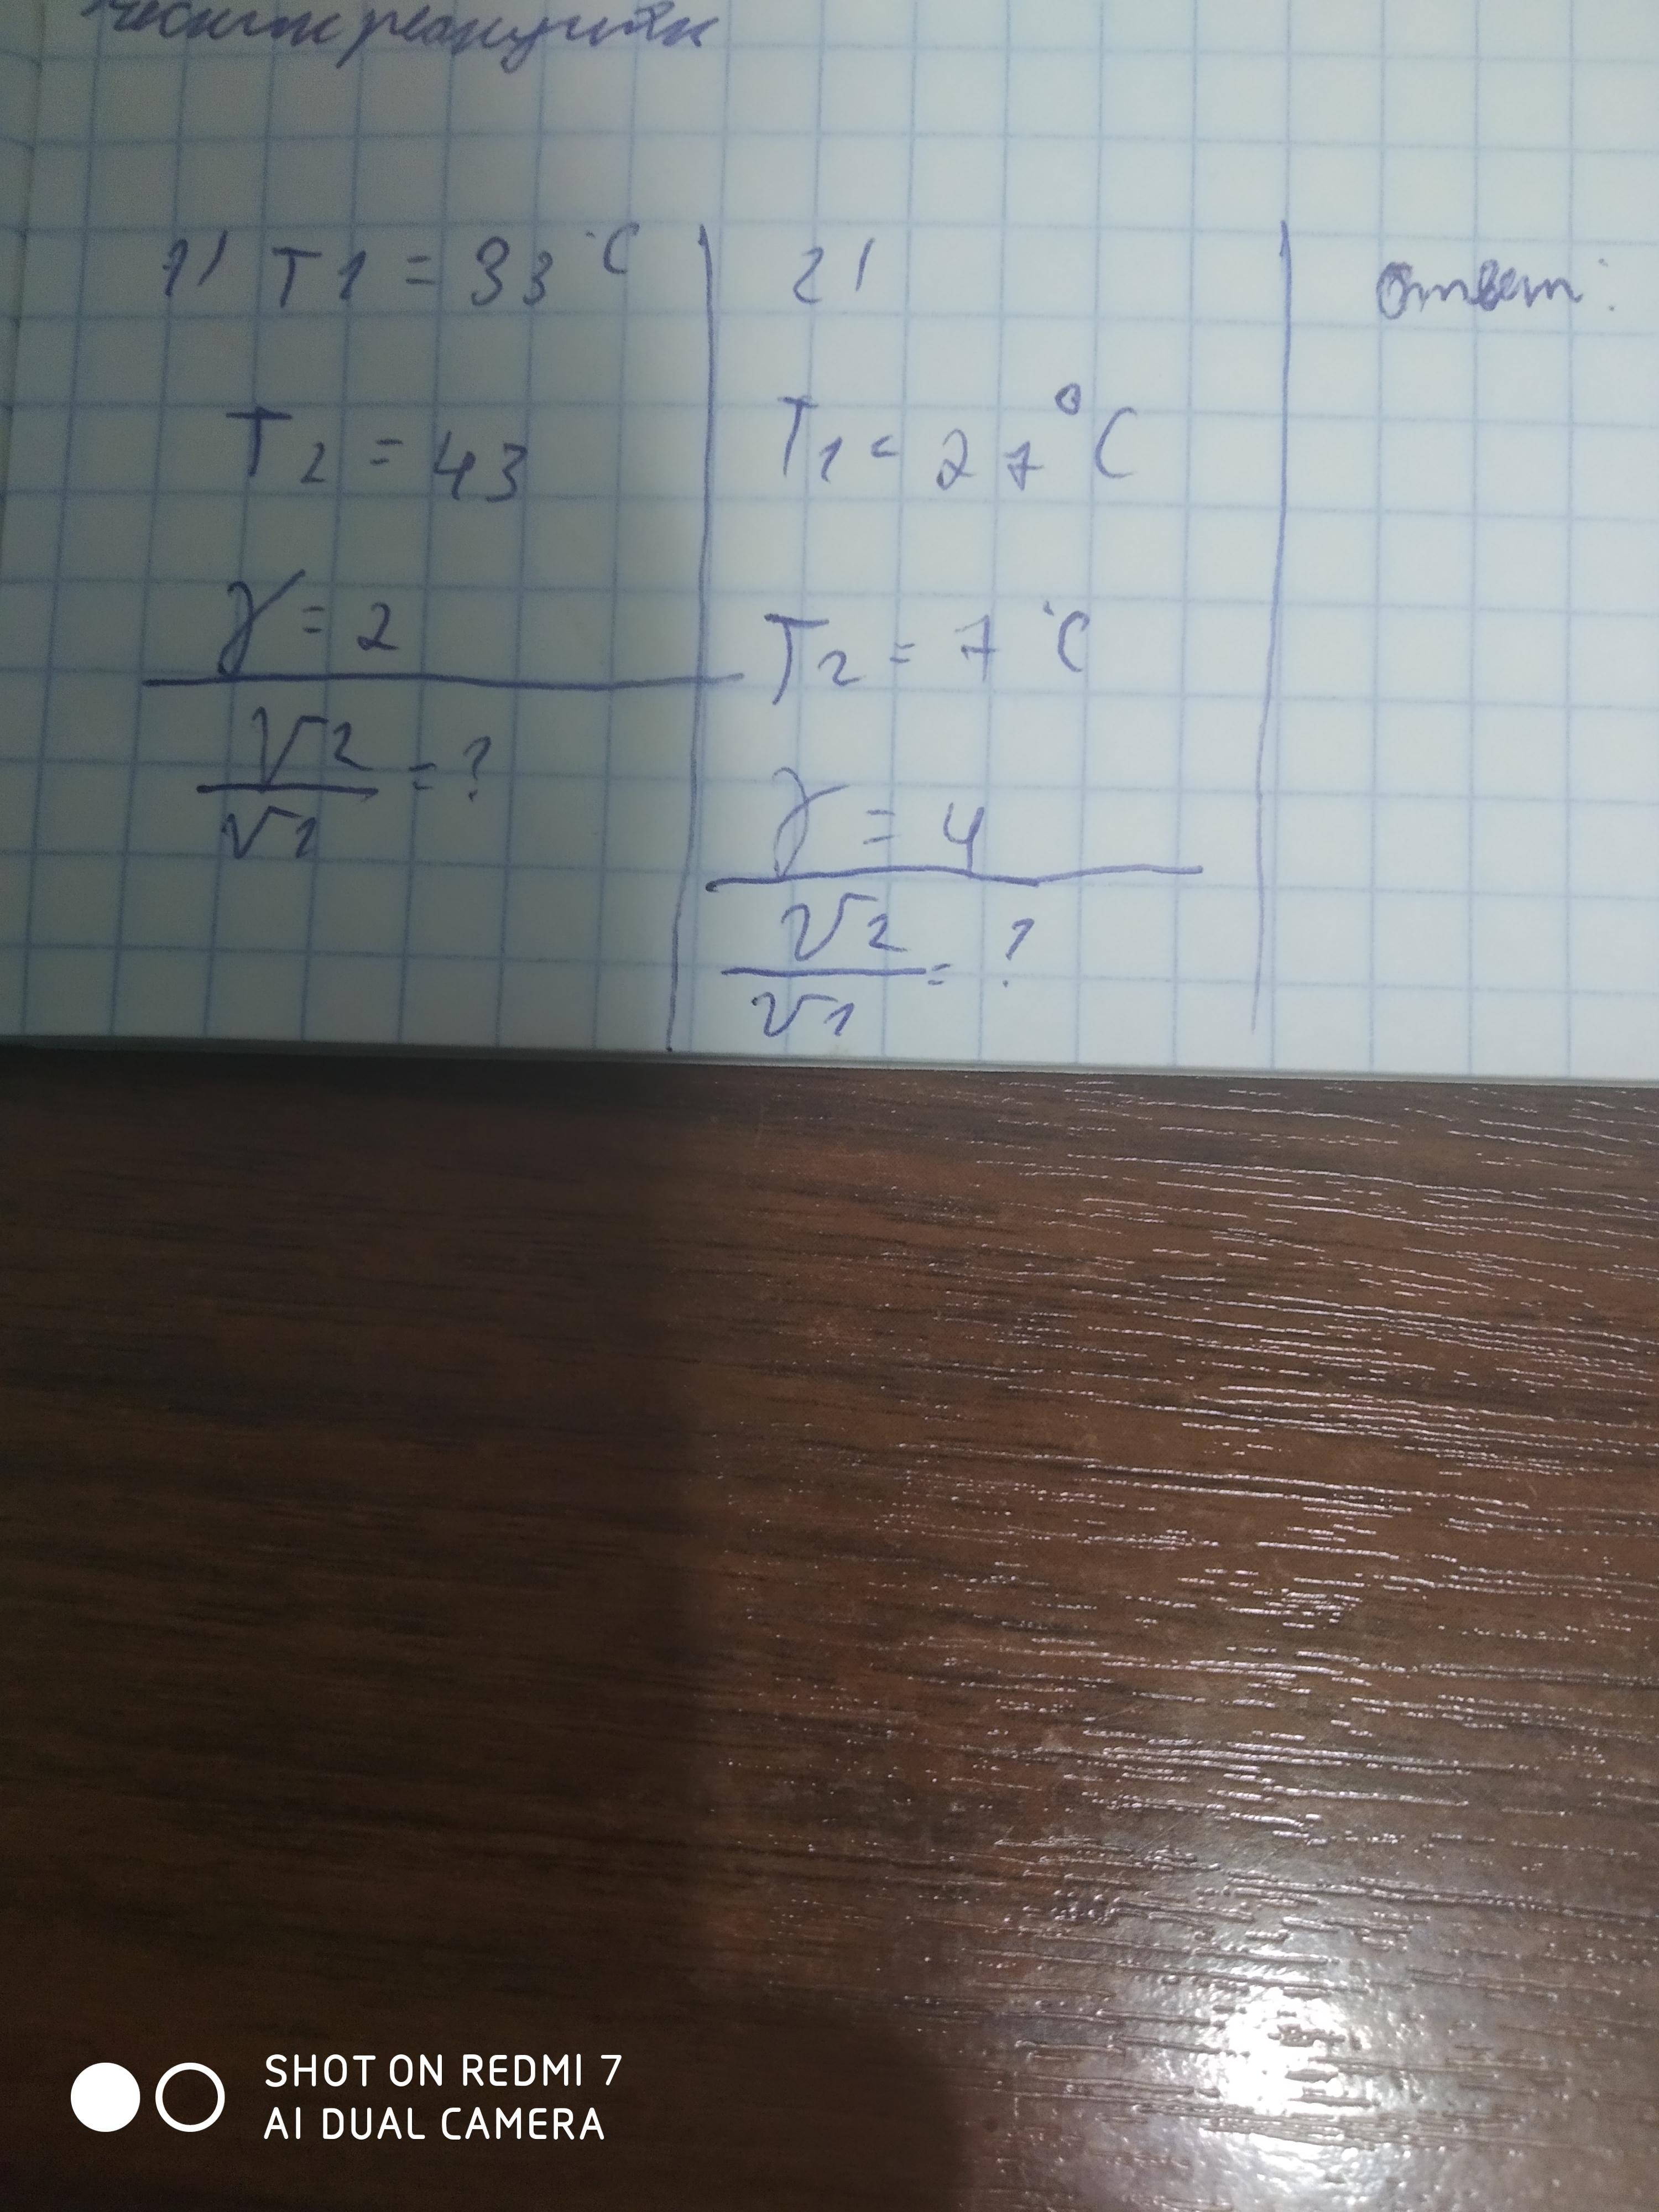 ческих реакциях
1) T1 = 33°C
T2 = 43
γ = 2
V2
V1
= ?
2)
T1 = 27°C
T2 = 7°C
γ = 4
V2
V1
= ?
Ответ:
SHOT ON REDMI 7
AI DUAL CAMERA